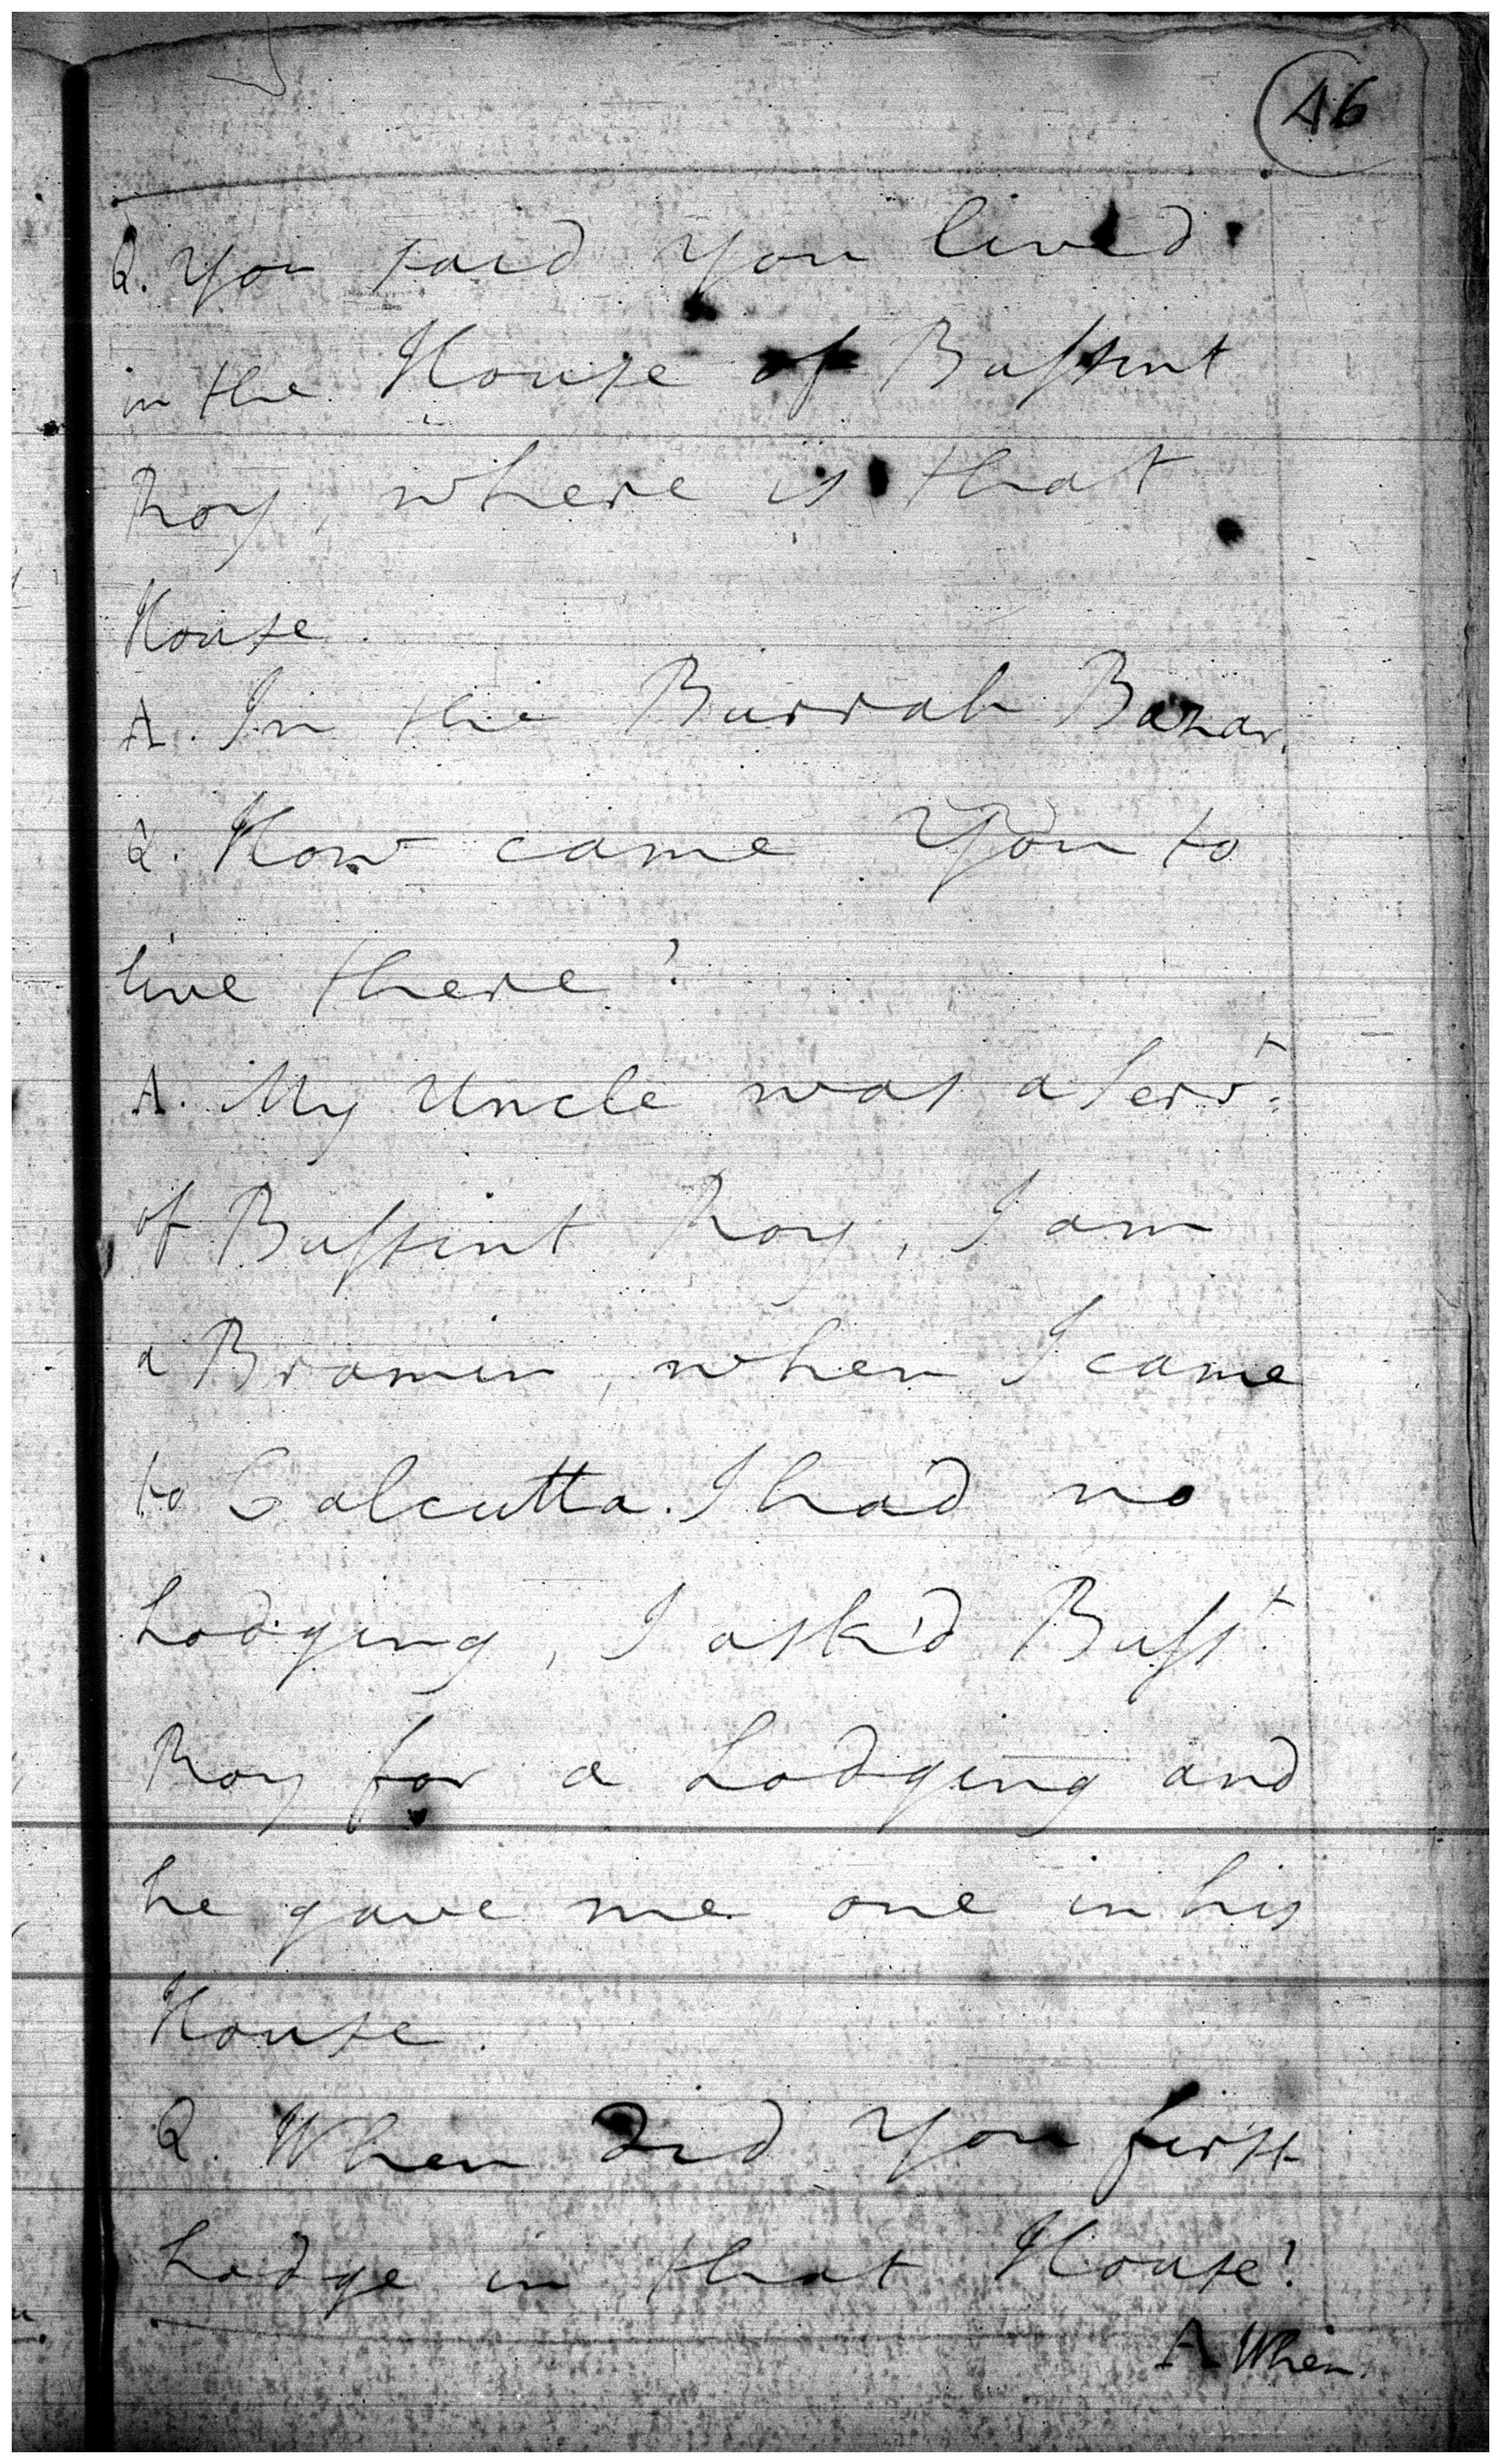 46
Q. You said you lived
in the House of Bussint
Roy, where is that
House.
A. In the Burrah Bazar.
Q. How came You to
live there?
A. My Uncle was a Servt.
of Bussint Roy, I am
a Bramin, when I came
to Calcutta. I had no
Lodging, I ask'd Busst.
Roy for a Lodging and
he gave me one in his
House.
Q. When did You first
Lodge in that House?
A When